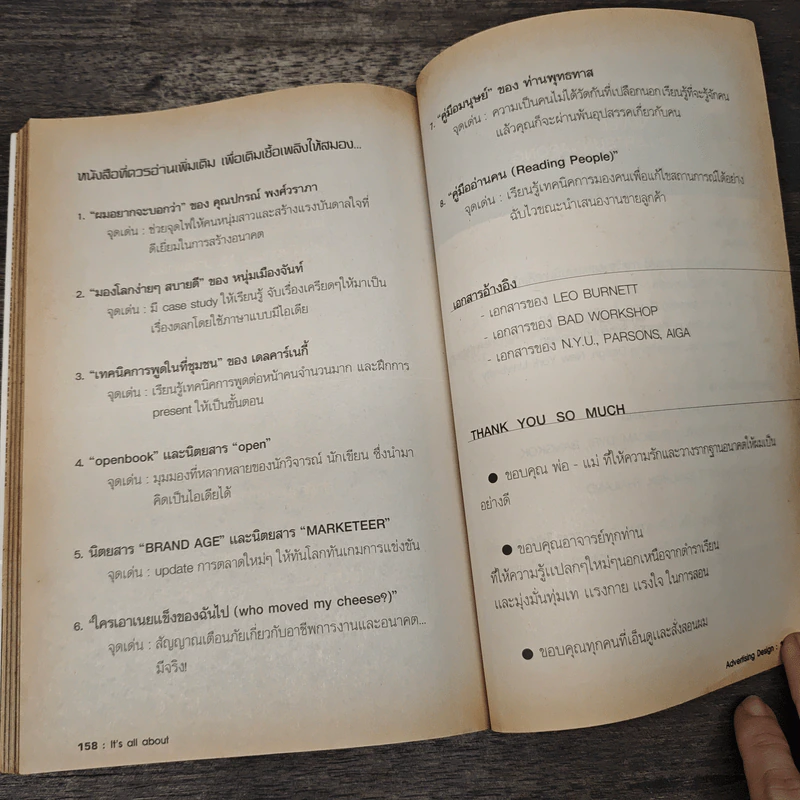 หนังสือที่ควรอ่านเพิ่มเติม เพื่อเติมเชื้อเพลิงให้สมอง...
1. "ผมอยากจะบอกว่า" ของ คุณปกรณ์ พงศ์วราภา
จุดเด่น : ช่วยจุดไฟให้คนหนุ่มสาวและสร้างแรงบันดาลใจที่
ดีเยี่ยมในการสร้างอนาคต
2. "มองโลกง่ายๆ สบายดี" ของ หนุ่มเมืองจันท์
จุดเด่น : มี case study ให้เรียนรู้ จับเรื่องเครียดๆให้มาเป็น
เรื่องตลกโดยใช้ภาษาแบบมีไอเดีย
3. "เทคนิคการพูดในที่ชุมชน" ของ เดลคาร์เนกี้
จุดเด่น : เรียนรู้เทคนิคการพูดต่อหน้าคนจำนวนมาก และฝึกการ
present ให้เป็นขั้นตอน
4. "openbook" และนิตยสาร "open"
จุดเด่น : มุมมองที่หลากหลายของนักวิจารณ์ นักเขียน ซึ่งนำมา
คิดเป็นไอเดียได้
5. นิตยสาร "BRAND AGE" และนิตยสาร "MARKETEER"
จุดเด่น : update การตลาดใหม่ๆ ให้ทันโลกทันเกมการแข่งขัน
6. "ใครเอาเนยแข็งของฉันไป (who moved my cheese?)"
จุดเด่น : สัญญาณเตือนภัยเกี่ยวกับอาชีพการงานและอนาคต...
มีจริง!
158 : It's all about
7. "คู่มือมนุษย์" ของ ท่านพุทธทาส
จุดเด่น : ความเป็นคนไม่ได้วัดกันที่เปลือกนอกเรียนรู้ที่จะรู้จักคน
แล้วคุณก็จะผ่านพ้นอุปสรรคเกี่ยวกับคน
8. "คู่มืออ่านคน (Reading People)"
จุดเด่น : เรียนรู้เทคนิคการมองคนเพื่อแก้ไขสถานการณ์ได้อย่าง
ฉับไวขณะนำเสนองานขายลูกค้า
เอกสารอ้างอิง
- เอกสารของ LEO BURNETT
- เอกสารของ BAD WORKSHOP
- เอกสารของ N.Y.U., PARSONS, AIGA
THANK YOU SO MUCH
● ขอบคุณ พ่อ - แม่ ที่ให้ความรักและวางรากฐานอนาคตให้ผมเป็น
อย่างดี
● ขอบคุณอาจารย์ทุกท่าน
ที่ให้ความรู้แปลกๆใหม่ๆนอกเหนือจากตำราเรียน
และมุ่งมั่นทุ่มเท แรงกาย แรงใจ ในการสอน
● ขอบคุณทุกคนที่เอ็นดูและสั่งสอนผม
Advertising Design :